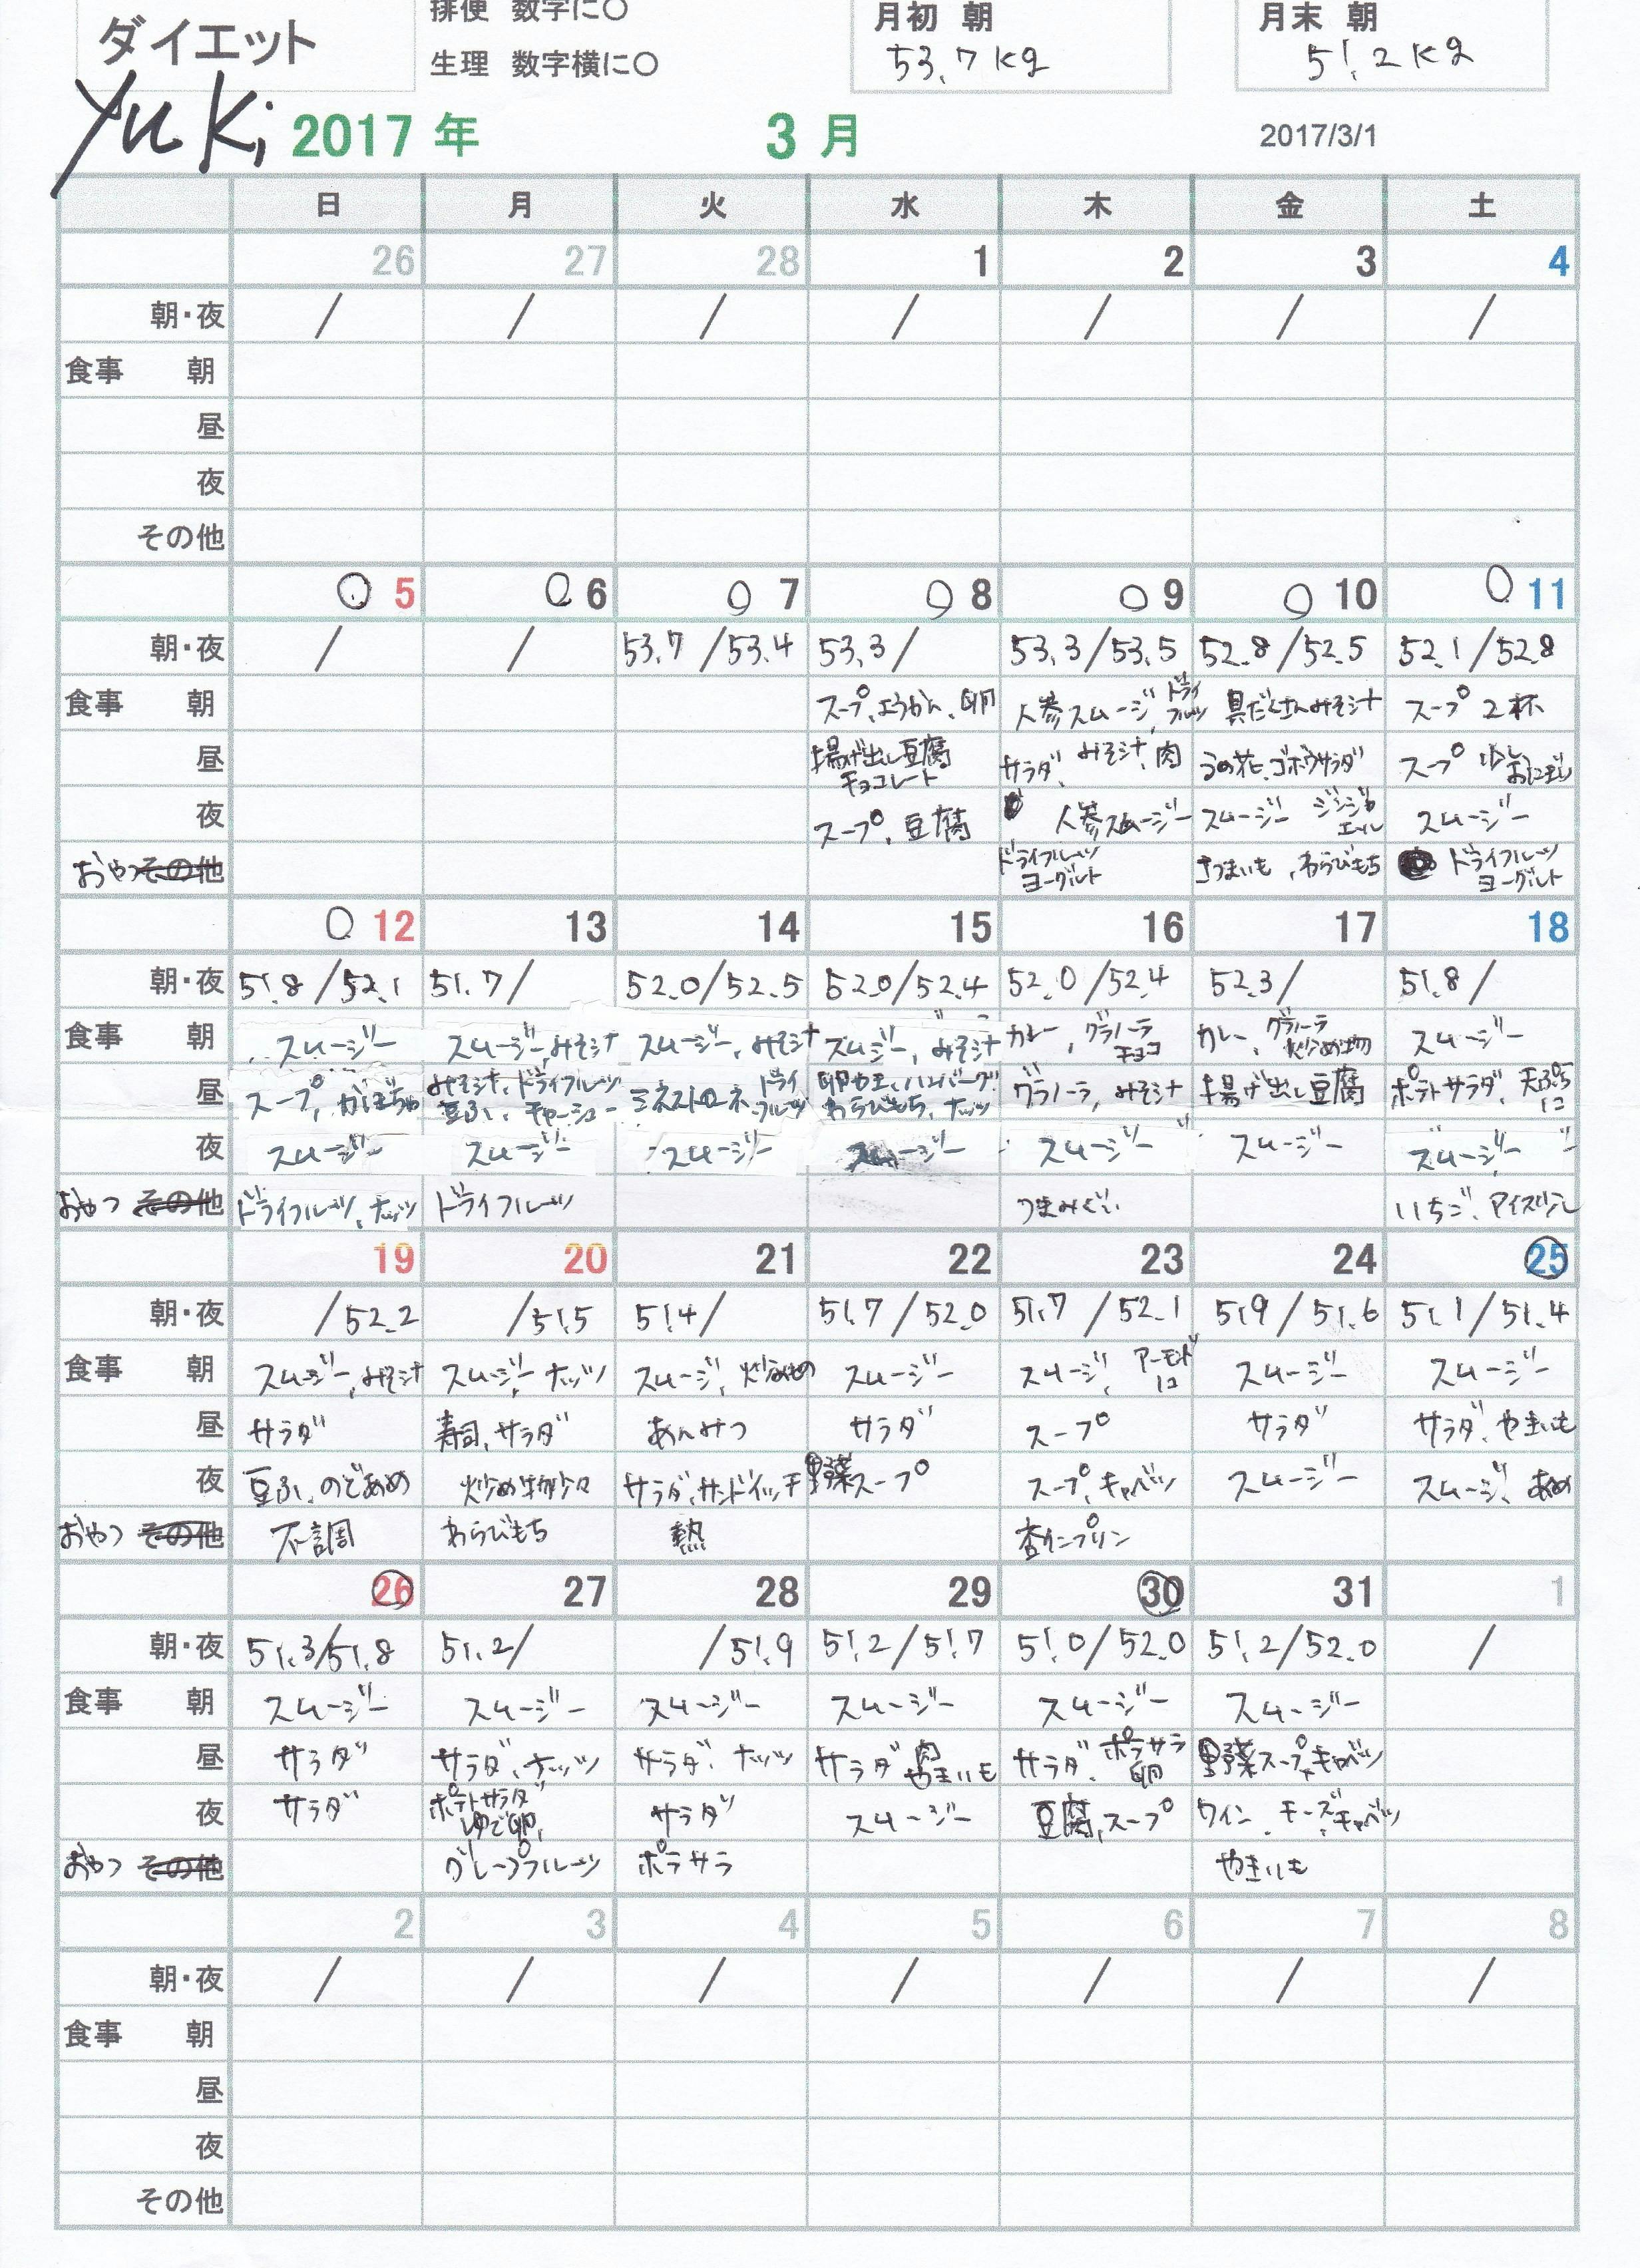 ダイエット
排便 数字に〇
生理 数字横に〇
月初 朝
53.7kg
月末 朝
51.2kg
Yuki 2017 年 3 月 2017/3/1
日 月 火 水 木 金 土
26 27 28 1 2 3 4
朝・夜 / / / / / / /
食事 朝
昼
夜
その他
〇 5 〇 6 〇 7 〇 8 〇 9 〇 10 〇 11
朝・夜 / / 53.7/53.4 53.3/ 53.3/53.5 52.8/52.5 52.1/52.8
食事 朝 スープ、ようかん、卵 人参スムージ、ドライフルーツ 具だくさんみそ汁 スープ2杯
昼 揚げ出し豆腐 チョコレート サラダ、みそ汁、肉 うの花、ゴボウサラダ スープ 少し おにぎり
夜 スープ、豆腐 人参スムージー スムージー ジンジャエール スムージー
おやつ その他 ドライフルーツ ヨーグルト さつまいも、わらびもち ドライフルーツ ヨーグルト
〇 12 13 14 15 16 17 18
朝・夜 51.8/52.1 51.7/ 52.0/52.5 52.0/52.4 52.0/52.4 52.3/ 51.8/
食事 朝 スムージー スムージー、みそ汁 スムージー、みそ汁 スムージー、みそ汁 カレー、グラノーラ チョコ カレー、グラノーラ 炒め物 スムージー
昼 スープ、かぼちゃ みそ汁、ドライフルーツ 豆ふ、チャーシュー ミネストローネ、ドライフルーツ ハンバーグ わらびもち、ナッツ グラノーラ、みそ汁 揚げ出し豆腐 ポテトサラダ、天ぷら1コ
夜 スムージー スムージー スムージー スムージー スムージー スムージー スムージー
おやつ その他 ドライフルーツ、ナッツ ドライフルーツ つまみぐい いちご、アイス少し
19 20 21 22 23 24 25
朝・夜 /52.2 /51.5 51.4/ 51.7/52.0 51.7/52.1 51.9/51.6 51.1/51.4
食事 朝 スムージー、みそ汁 スムージー、ナッツ スムージ、炒め物 スムージー スムージ、アーモンド1コ スムージー スムージー
昼 サラダ 寿司、サラダ あんみつ サラダ スープ サラダ サラダ、やきいも
夜 豆ふ、のどあめ 炒め物少々 サラダ、サンドイッチ 野菜スープ スープ、キャベツ スムージー スムージ、あめ
おやつ その他 不調 わらびもち 熱 杏仁プリン
26 27 28 29 30 31 1
朝・夜 51.3/51.8 51.2/ /51.9 51.2/51.7 51.0/52.0 51.2/52.0 /
食事 朝 スムージー スムージー スムージー スムージー スムージー スムージー
昼 サラダ サラダ、ナッツ サラダ、ナッツ サラダ 肉 やきいも サラダ、ポテサラ 卵 野菜スープ、キャベツ
夜 サラダ ポテトサラダ ゆで卵、 サラダ スムージー 豆腐、スープ ワイン、チーズ、キャベツ
おやつ その他 グレープフルーツ ポテサラ やきいも
2 3 4 5 6 7 8
朝・夜 / / / / / / /
食事 朝
昼
夜
その他